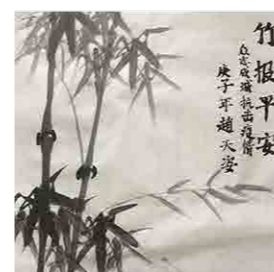 竹报平安
众志成城抗击疫情
庚子年趙天姿